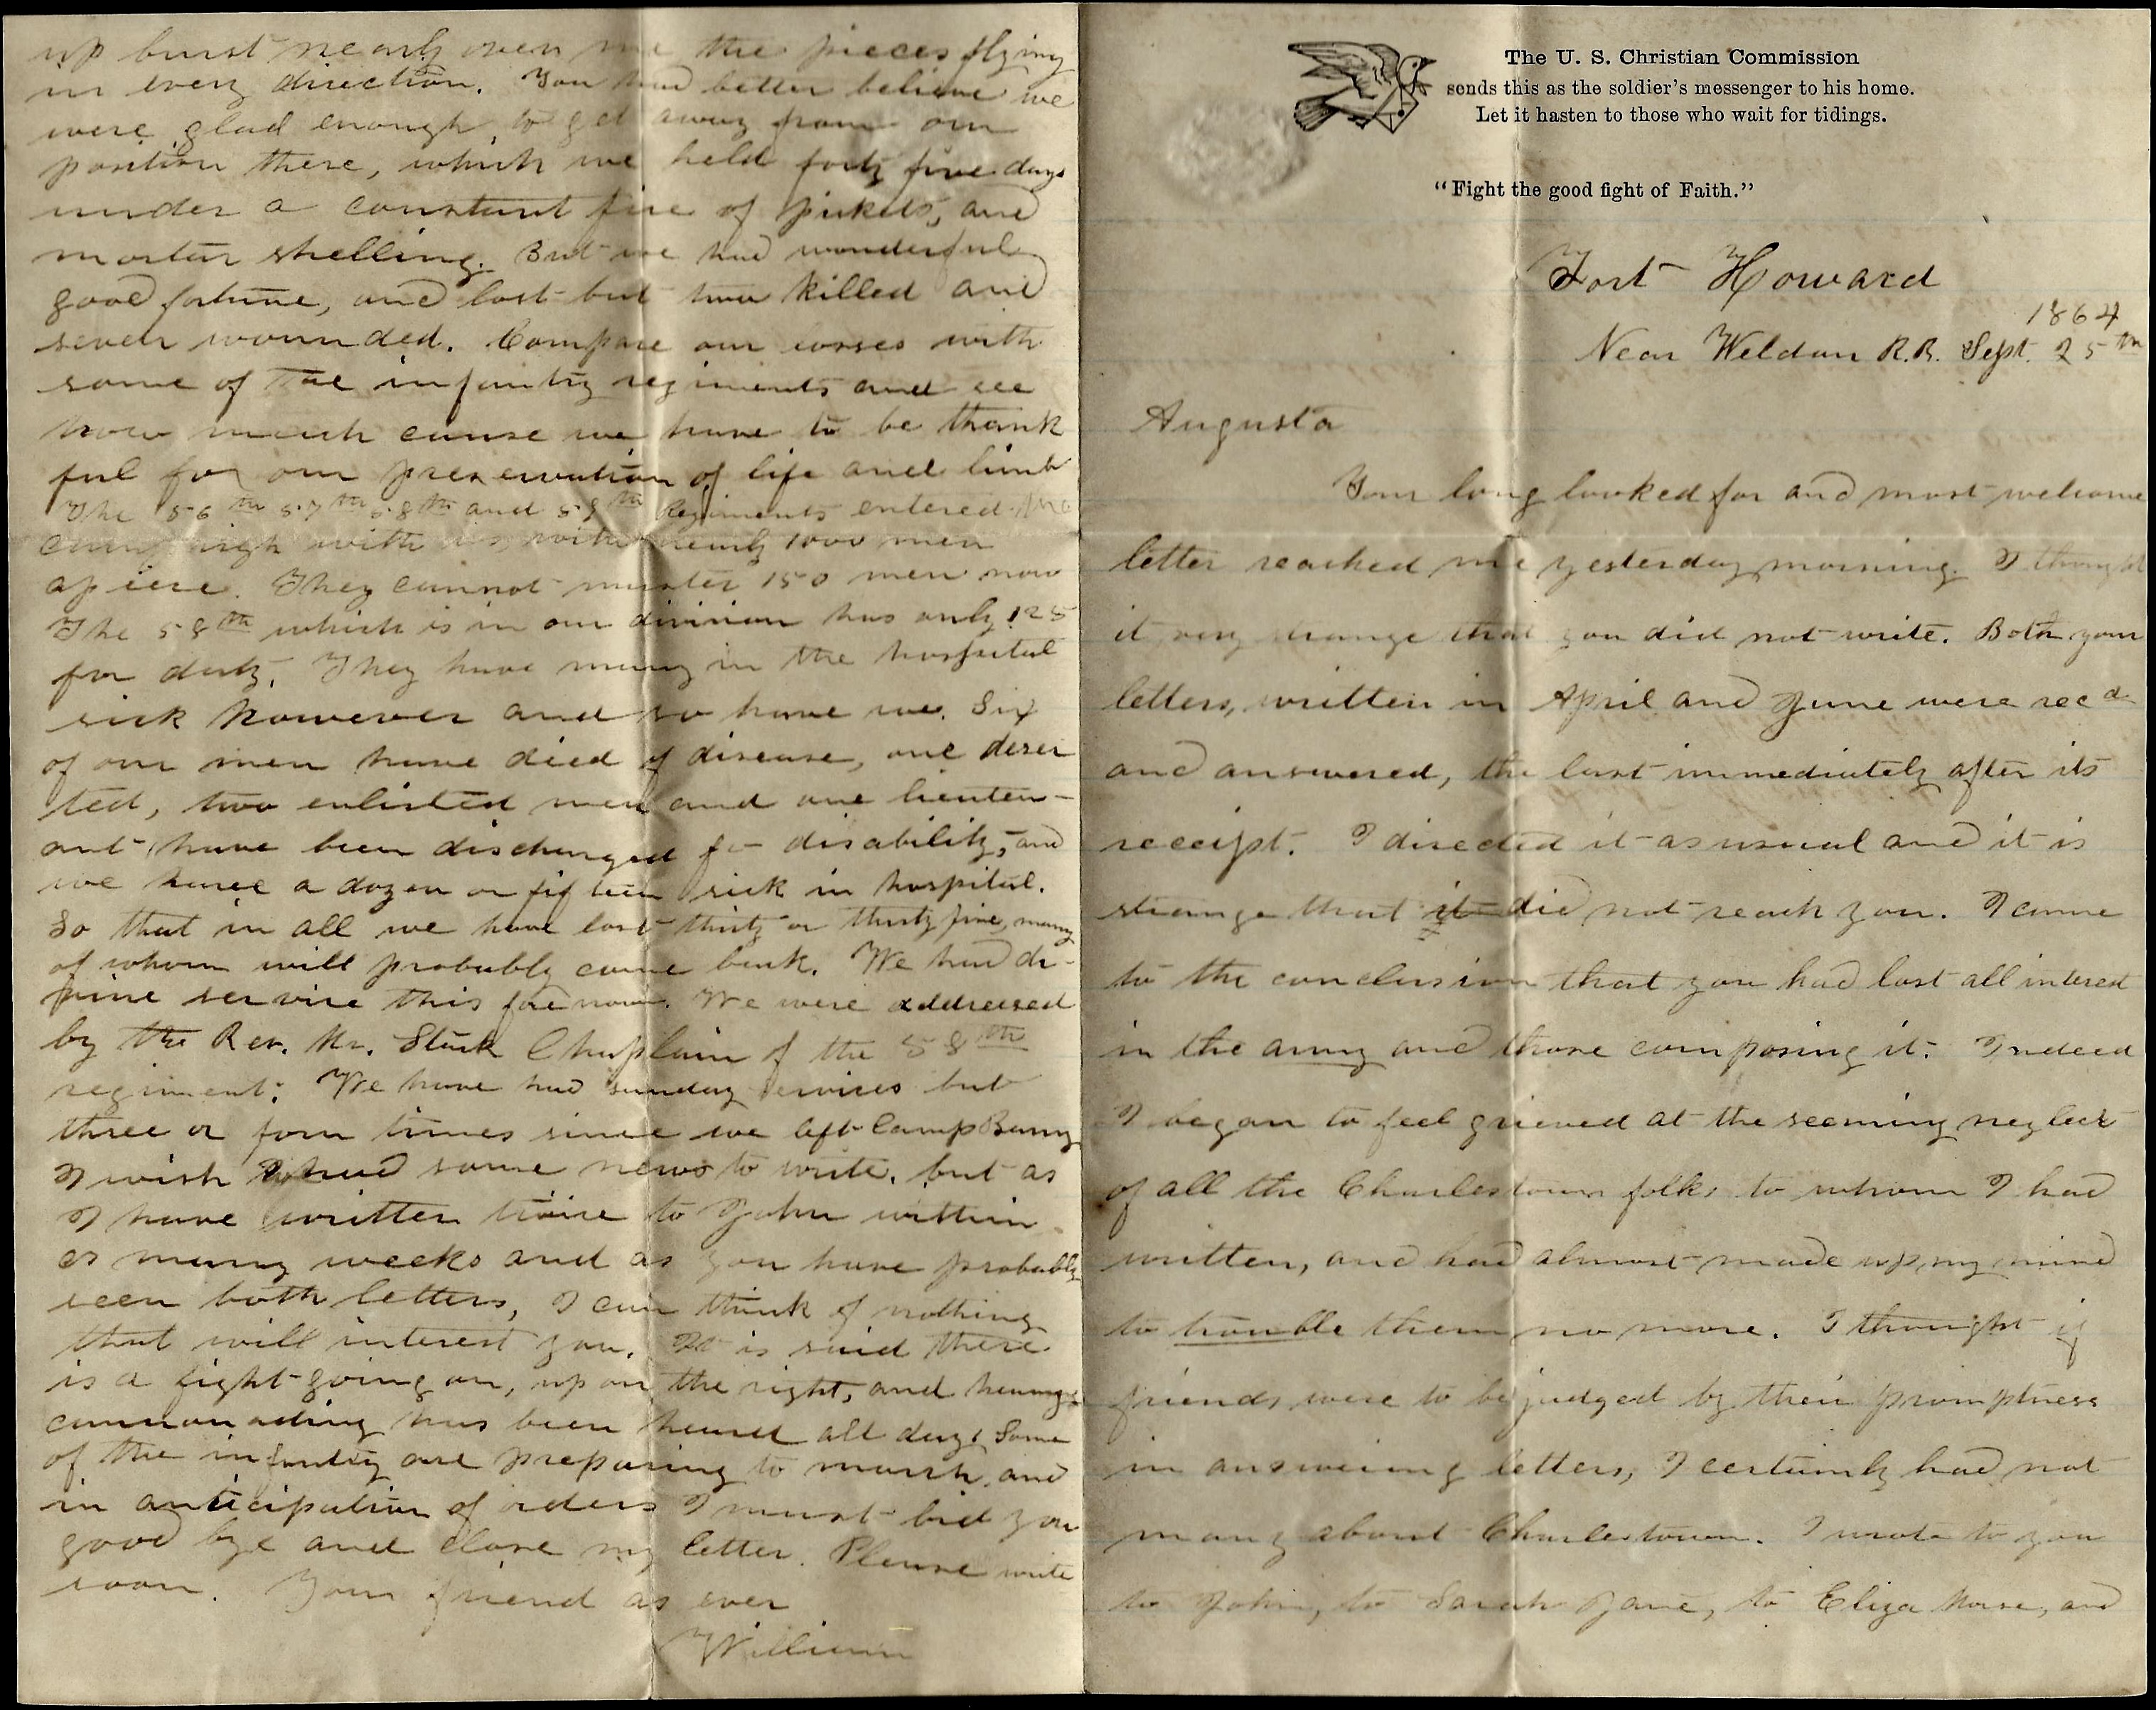 up burst nearly over me the pieces flying
in every direction. You had better believe we
were glad enough to get away from our
position there, which we held forty five days
under a constant fire of pickets, and
mortar shelling. But we had wonderful
good fortune, and lost but two killed and
seven wounded. Compare our losses with
some of the infantry regiments and see
how much cause we have to be thank
ful for our preservation of life and limb
The 56th 57th 58th and 59th Regiments entered the
campaign with us, with nearly 1000 men
apiece. They cannot muster 150 men now
The 58th which is in our division has only 125
for duty. They have many in the hospital
sick however and so have we. Six
of our men have died of disease, one deser
ted, two enlisted men and one lieuten-
ant have been discharged for disability, and
we have a dozen or fifteen sick in hospital.
So that in all we have lost thirty or thirty five, many
of whom will probably come back. We had di-
vine service this forenoon. We were addressed
by the Rev. Mr. Chaplain of the 58th
regiment. We have had sunday services but
three or four times since we left Camp Barry
I wish I had some news to write, but as
I have written twice to John within
as many weeks and as you have probably
seen both letters, I can think of nothing
that will interest you. It is said there
is a fight going on, up on the right, and heavy
cannonading has been heard all day. Some
of the infantry are preparing to march, and
in anticipation of orders I must bid you
good bye and close my letter. Please write
soon. Your friend as ever
William
The U. S. Christian Commission
sends this as the soldier's messenger to his home.
Let it hasten to those who wait for tidings.
"Fight the good fight of Faith."
Fort Howard
1864
Near Weldon R.R. Sept. 25th
Augusta
Your long looked for and most welcome
letter reached me yesterday morning. I thought
it very strange that you did not write. Both your
letters, written in April and June were recd
and answered, the last immediately after its
receipt. I directed it as usual and it is
strange that it did not reach you. I came
to the conclusion that you had lost all interest
in the army and those composing it. Indeed
I began to feel grieved at the seeming neglect
of all the Charlestown folks to whom I had
written, and had almost made up my mind
to trouble them no more. I thought if
friends were to be judged by their promptness
in answering letters, I certainly had not
many about Charlestown. I wrote to you
to John, to Sarah Jane, to Eliza Morse, and